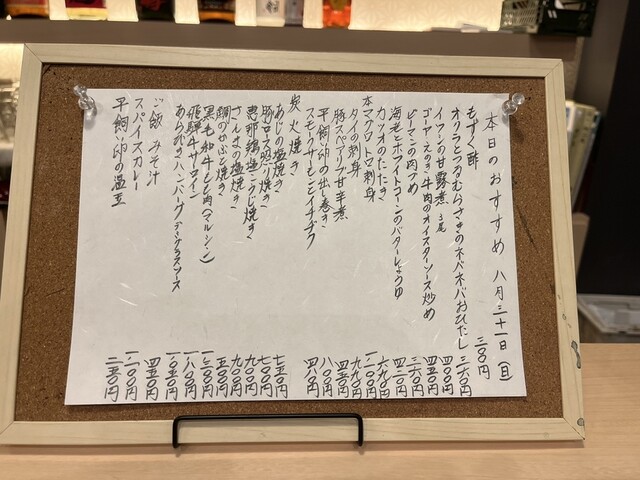 本日のおすすめ 八月三十一日(日)
もずく酢 三〇〇円
オクラとつるむらさきのネバネバおひたし 三六〇円
イワシの甘露煮 3尾 四〇〇円
ゴーヤえのき牛肉のオイスターソース炒め 四五〇円
ピーマンの肉づめ 三六〇円
海老とホワイトコーンのバターしょうゆ 四二〇円
カツオのたたき 六九〇円
本マグロトロ刺身 一二〇〇円
タイの刺身 九九〇円
豚スペアリブ甘辛煮 四五〇円
平飼い卵の出し巻き 八〇〇円
スモークサーモンとイチヂク 四八〇円
炭火焼き
あじの塩焼き 七五〇円
豚ロース照り焼き 七〇〇円
恵那鶏塩こうじ焼き 九〇〇円
さんまの塩焼き 九〇〇円
鯛のかぶと焼き 五〇〇円
黒毛和牛もも肉(マルシン) 一二〇〇円
飛騨牛サーロイン 一八〇〇円
あらびきハンバーグデミグラスソース 一〇五〇円
ご飯 みそ汁 四五〇円
スパイスカレー 一一〇〇円
平飼い卵の温玉 二五〇円